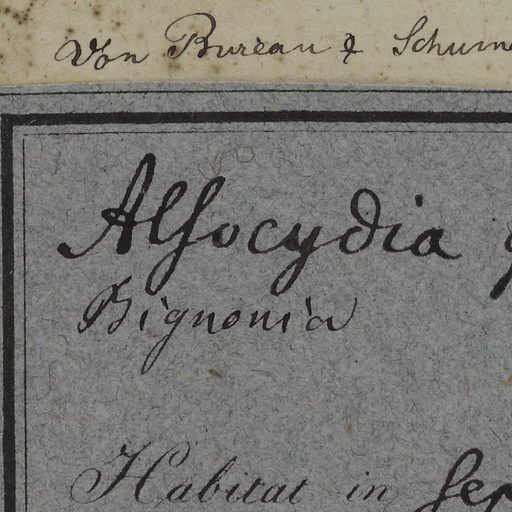 Von Bureau & Schum
Alsocydia
Bignonia
Habitat in sep